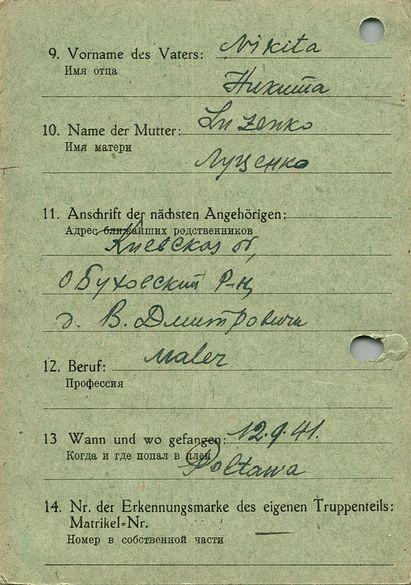 9. Vorname des Vaters: Nikita
Имя отца
Никита
10. Name der Mutter: Luzenko
Имя матери
Луценко
11. Anschrift der nächsten Angehörigen:
Адрес ближайших родственников
Киевская об,
Обуховский Р-н,
д. В. Дмитровичи
12. Beruf: Maler
Профессия
13 Wann und wo gefangen: 12.9.41.
Когда и где попал в плен
Poltawa
14. Nr. der Erkennungsmarke des eigenen Truppenteils:
Matrikel-Nr. —
Номер в собственной части